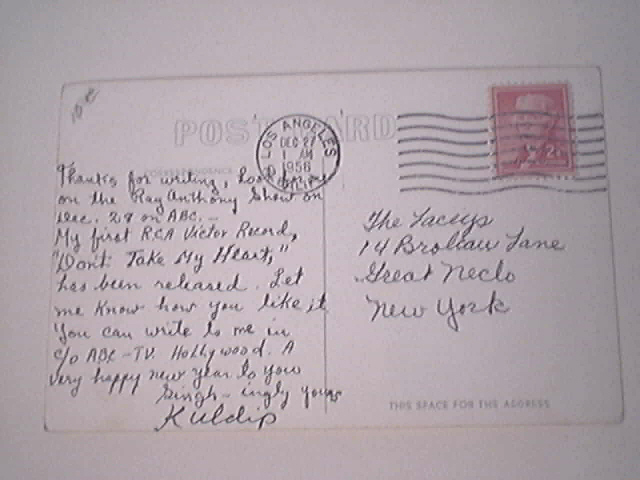 10¢
POST CARD
CORRESPONDENCE
LOS ANGELES
DEC 27
1 AM
1956
CALIF
2¢
Thanks for writing, Look for me
on the Ray Anthony Show on
Dec. 28 on ABC. —
My first RCA Victor Record,
"Don't Take My Heart,"
has been released. Let
me know how you like it
You can write to me in
c/o ABC - TV. Hollywood. A
very happy new year to you
Singh - ingly yours
Kuldip
The Laceys
14 Brokaw Lane
Great Neck
New York
THIS SPACE FOR THE ADDRESS